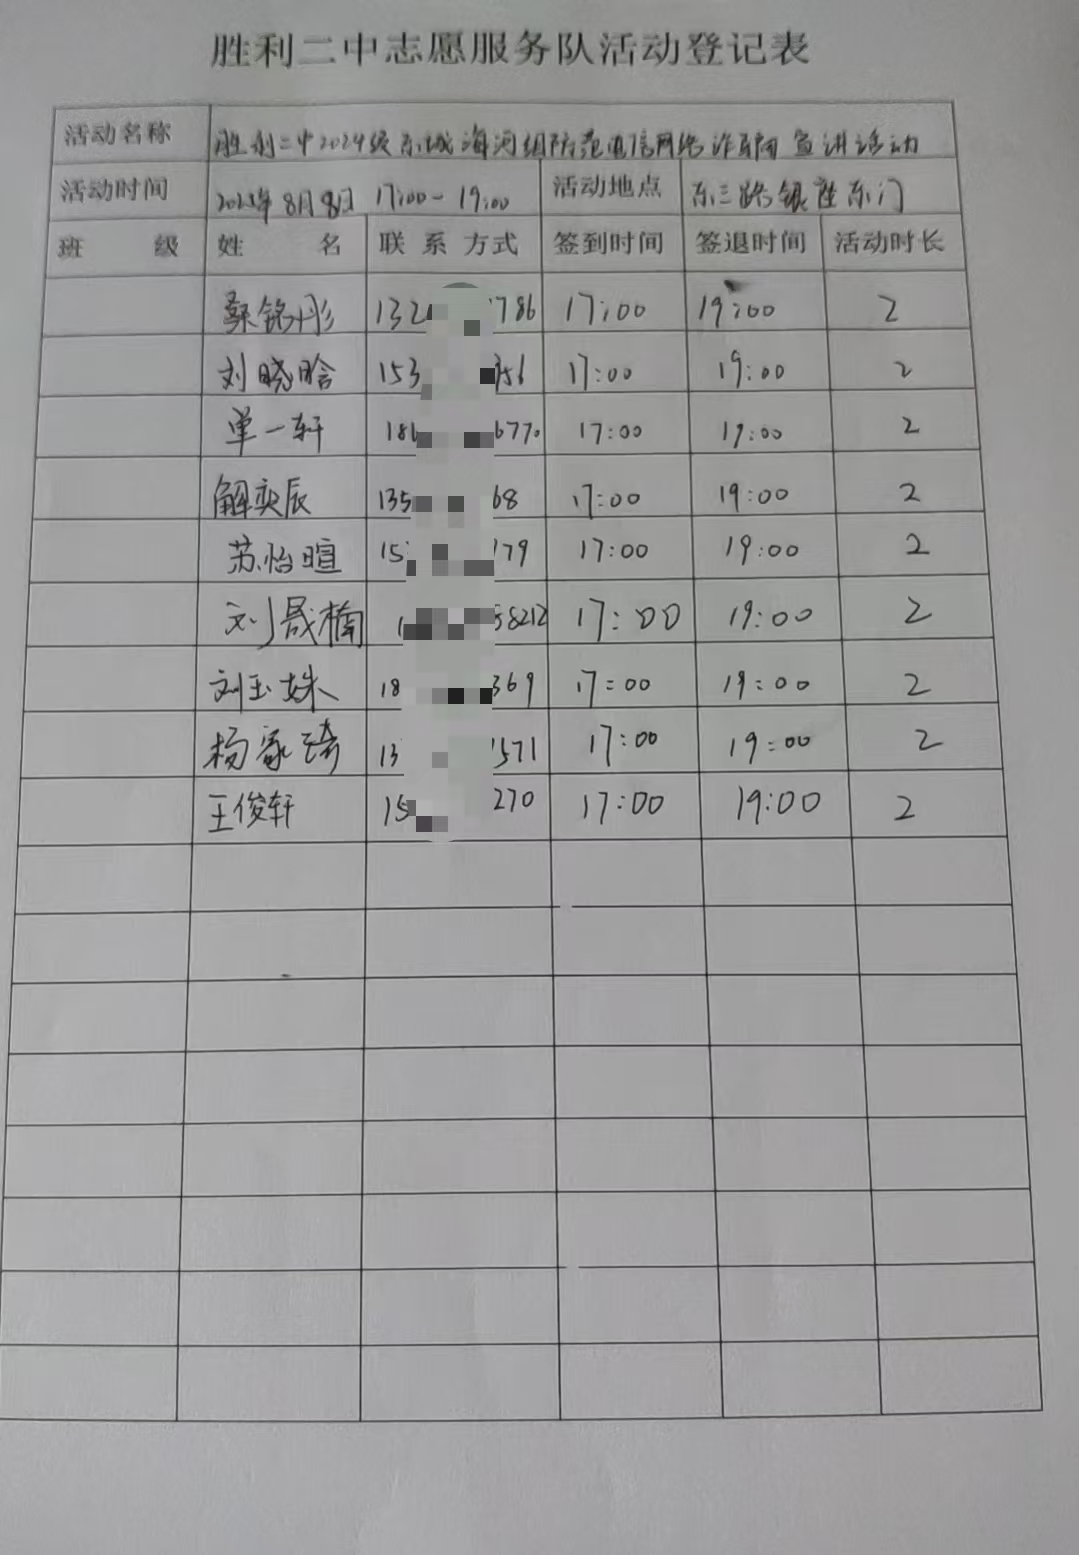 胜利二中志愿服务队活动登记表
活动名称 胜利二中2024级东城海河组防范电信网络诈骗宣讲活动
活动时间 2025年8月8日 17:00-19:00 活动地点 东三路银座东门
班 级 姓 名 联系方式 签到时间 签退时间 活动时长
桑铭彤 132 786 17:00 19:00 2
刘晓晗 153 56 17:00 19:00 2
单一轩 186 6770 17:00 19:00 2
解奕辰 135 68 17:00 19:00 2
苏怡暄 15 179 17:00 19:00 2
刘晟楠 1 58212 17:00 19:00 2
刘玉姝 18 369 17:00 19:00 2
杨家琦 13 1571 17:00 19:00 2
王俊轩 15 270 17:00 19:00 2